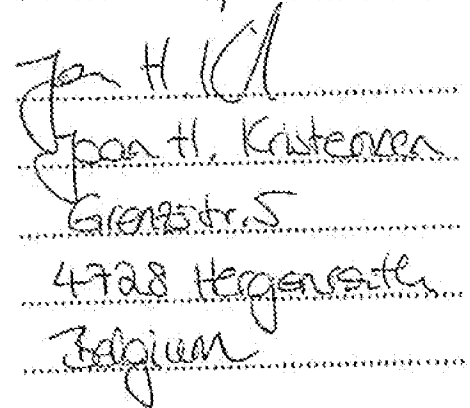 Joan H.
Joan H. Kristensen
Grenzstr. 5
4728 Hergenrath
Belgium